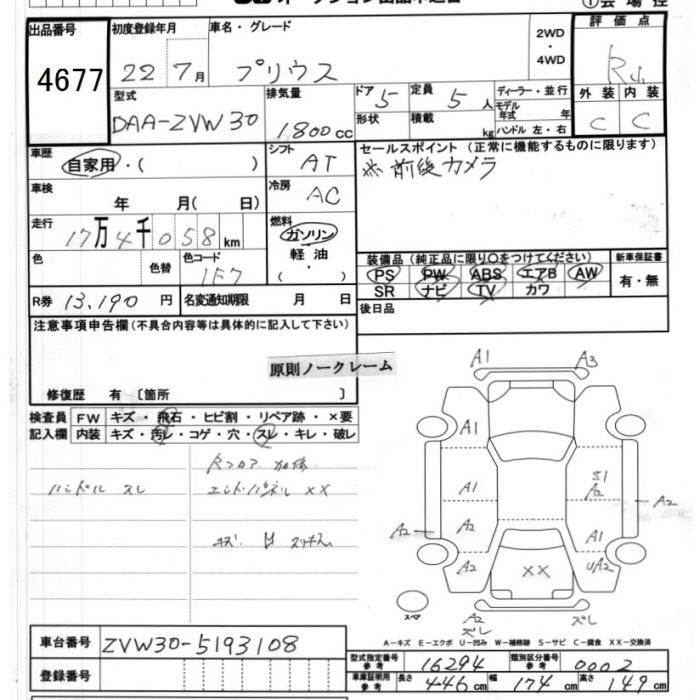 4677
出品番号 初度登録年月 車名・グレード 2WD・4WD 評価点
22 7月 プリウス
型式 排気量 ドア 5 定員 5人 ディーラー・並行 外装 内装
DAA-ZVW30 1800cc 形状 積載 kg モデル年式 年 ハンドル 左・右 C C
車歴 自家用・( ) シフト AT セールスポイント (正常に機能するものに限ります)
※ 前後カメラ
車検 年 月( 日) 冷房 AC
走行 17万4千058km 燃料 ガソリン 軽油 ・( )
色 色替 色コード 1F7
装備品 (純正品に限り〇をつけてください) 新車保証書
PS PW ABS エアB AW 有・無
SR ナビ TV カワ
R券 13,190円 名変通知期限 月 日 後日品
注意事項申告欄 (不具合内容等は具体的に記入して下さい)
原則ノークレーム
修復歴 有 〔箇所 〕
検査員 FW キズ・飛石・ヒビ割・リペア跡・×要
記入欄 内装 キズ・汚レ・コゲ・穴・スレ・キレ・破レ
ハンドル スレ
エンドパネル ××
A1 A3
A1
A1 S1 A2
A2 A2 A1 A2
A2 UA2
××
A2 ズレ ズレ
スペア
A-キズ E-エクボ U-凹み W-補修跡 S-サビ C-腐食 XX-交換済
車台番号 ZVW30-5193108
登録番号
型式指定番号 参考 16294 類別区分番号 参考 0002
車庫証明用 参考 長さ 446cm 幅 174cm 高さ 149cm